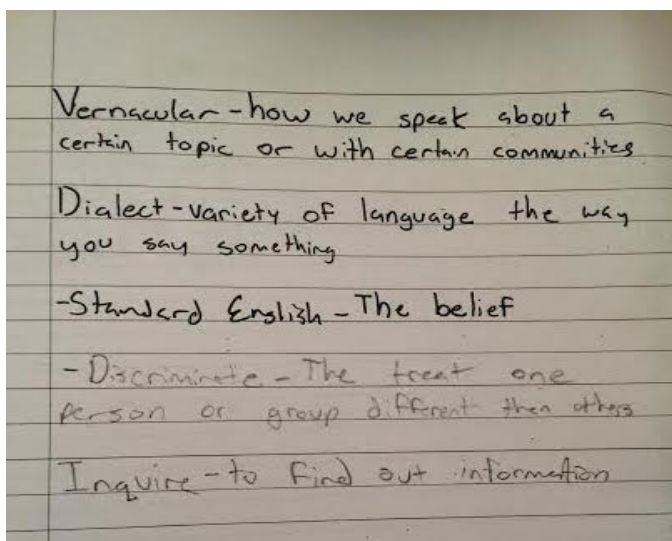 Vernacular - how we speak about a
certain topic or with certain communities
Dialect - variety of language the way
you say something
- Standard English - The belief
- Discriminate - The treat one
person or group different then others
Inquire - to find out information